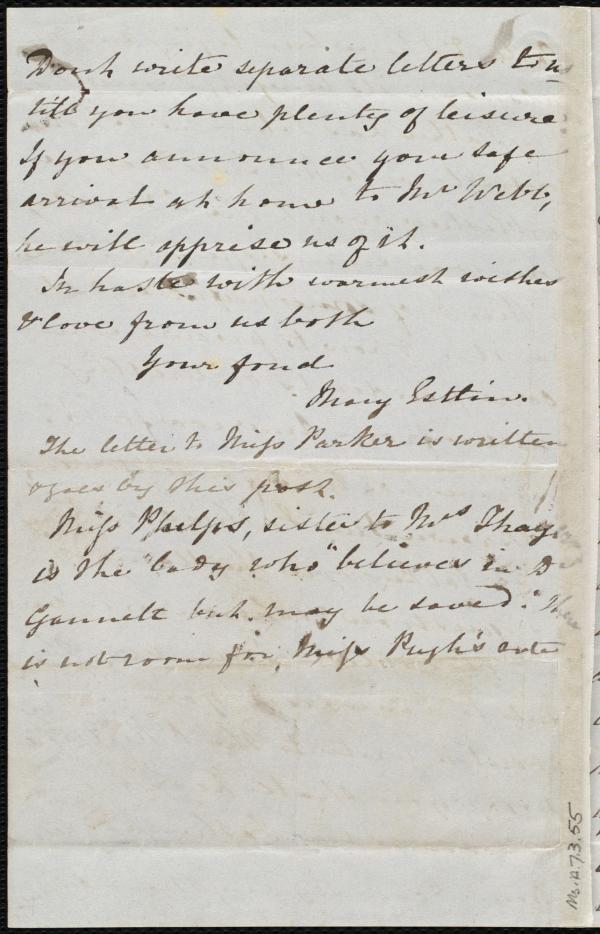 Don't write separate letters to us
till you have plenty of leisure
If you announce your safe
arrival at home to Mr Webb,
he will apprise us of it.
In haste with warmest wishes
& love from us both
Your fond
Mary Estlin.
The letter to Miss Parker is written
& goes by this post.
Miss Phelps, sister to Mrs Thayer
is the "lady who "believes in D
Gannett but may be saved." There
is not room for Miss Pugh's
Ms.A.7.3.55